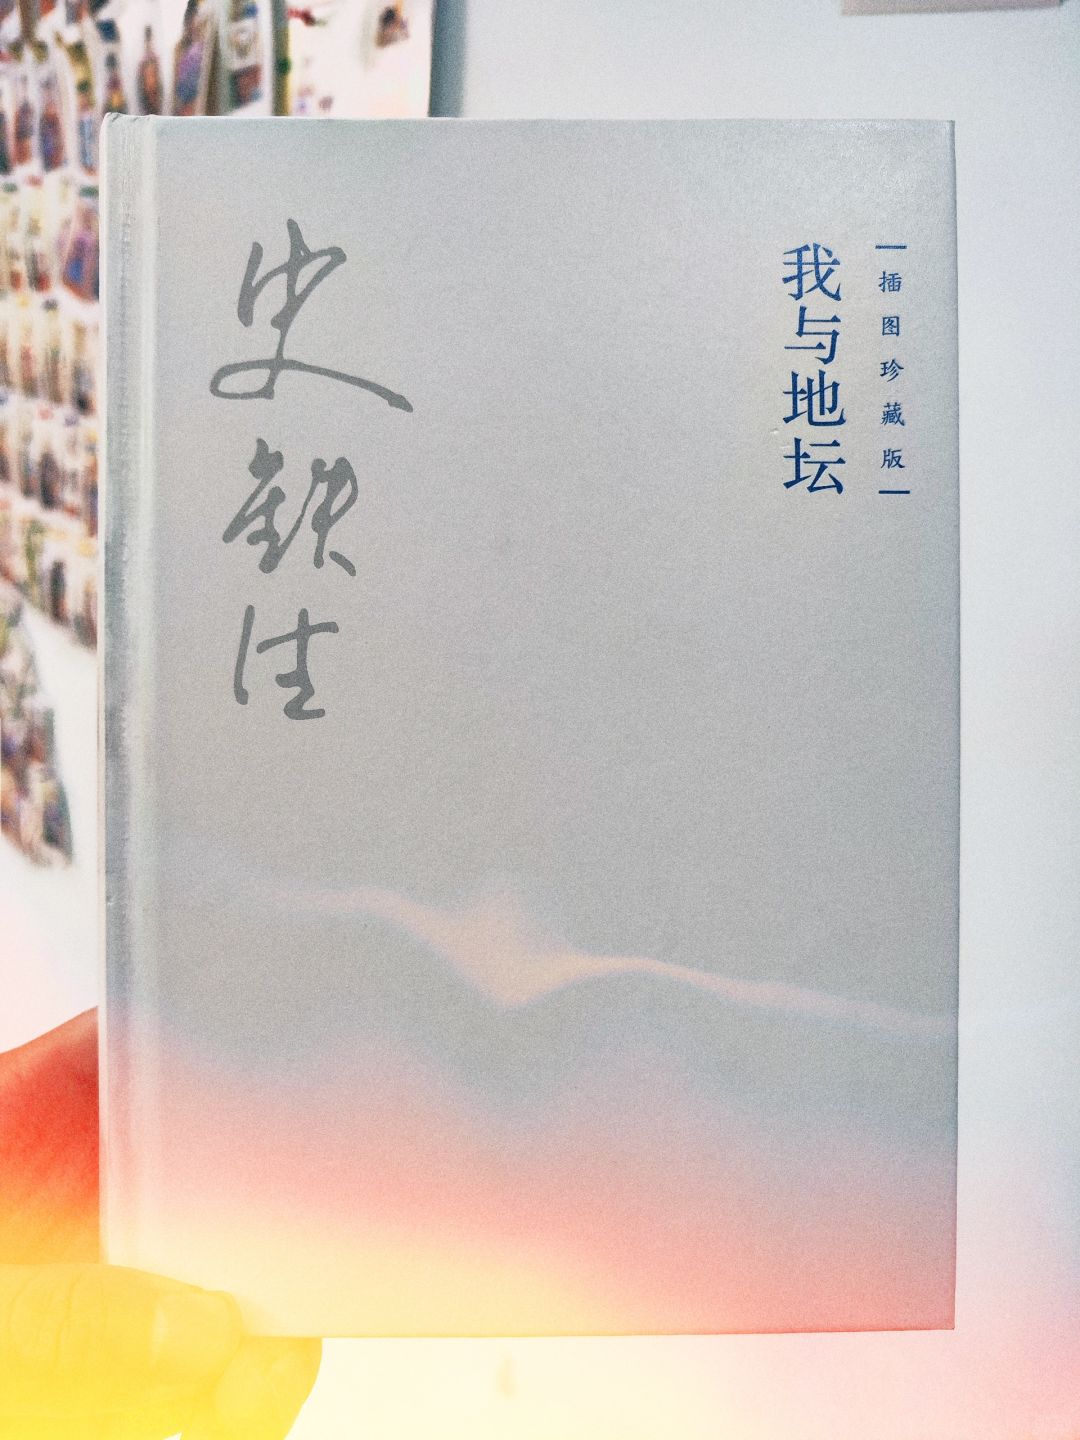 插图珍藏版
我与地坛
史铁生